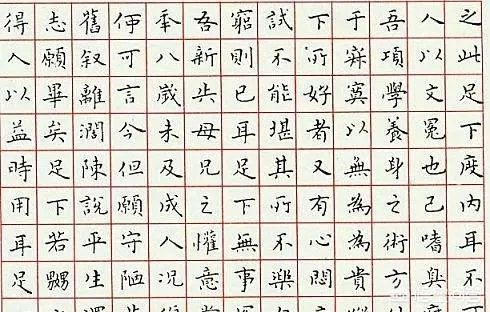 之此足下度內耳不
人以文冕也己嗜臭
吾項學養身之術方
于寂寞以無為為貴
下所好者又有心悶
試不能堪其所不樂
窮則已耳足下無事
吾新失母兄之懽意
年八歲未及成人況
何可言今但願守陋
舊叙離闊陳說平生
志願畢矣足下若嬲
得人以益時用耳足